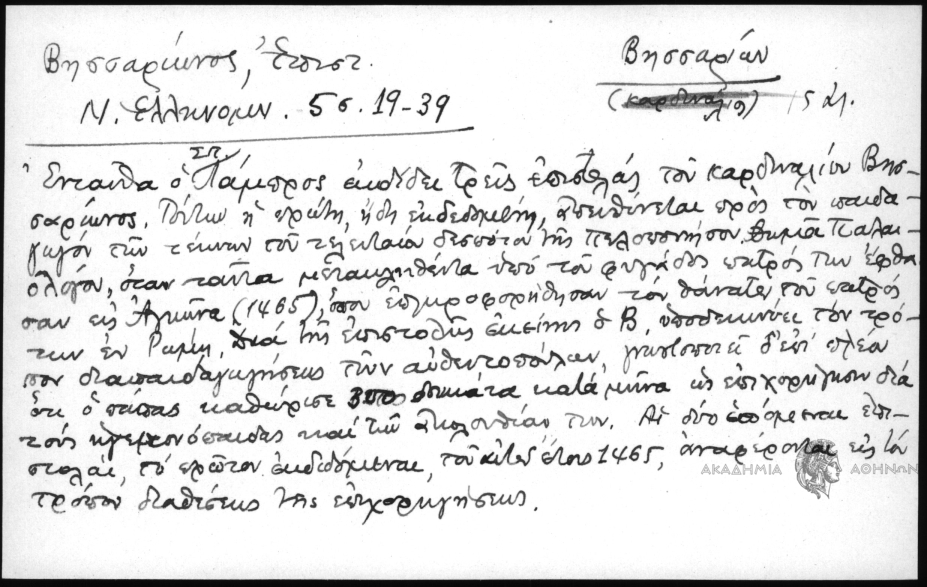 Βησσαρίωνος, Ἐπιστ.
Ν. Ἑλληνομν. 5 σ. 19-39
Βησσαρίων
(καρδινάλιος) 15 αἰ.
Σπ.
Ἐνταῦθα ὁ Λάμπρος ἐκδίδει τρεῖς ἐπιστολάς τοῦ καρδιναλίου Βησ-
σαρίωνος. Τούτων ἡ πρώτη, ἤδη ἐκδεδομένη, ἀπευθύνεται πρὸς τὸν παιδα-
γωγὸν τῶν τέκνων τοῦ τελευταίου δεσπότου τῆς Πελοποννήσου Θωμᾶ Παλαι-
ολόγου, ὅταν ταῦτα μετακληθέντα ὑπὸ τοῦ φυγάδος πατρός των ἔφθα-
σαν εἰς Ἀγκῶνα (1465), ὅπου ἐπληροφορήθησαν τὸν θάνατον τοῦ πατρός
των ἐν Ρώμῃ. Διὰ τῆς ἐπιστολῆς ἐκείνης ὁ Β. ὑποδεικνύει τὸν τρό-
πον διαπαιδαγωγήσεως τῶν αὐθεντοπούλων, γνωστοποιεῖ δ' ἐπὶ πλέον
ὅτι ὁ πάπας καθώρισε 300 δουκάτα κατὰ μῆνα ὡς ἐπιχορήγησιν διὰ
τοὺς ἡγεμονόπαιδας καὶ τὴν ἀκολουθίαν των. Αἱ δύο ἑπόμεναι ἐπι-
στολαί, τὸ πρῶτον ἐκδιδόμεναι, τοῦ αὐτοῦ ἔτους 1465, ἀναφέρονται εἰς τὸν
τρόπον διαθέσεως τῆς ἐπιχορηγήσεως.
ΑΚΑΔΗΜΙΑ ΑΘΗΝΩΝ